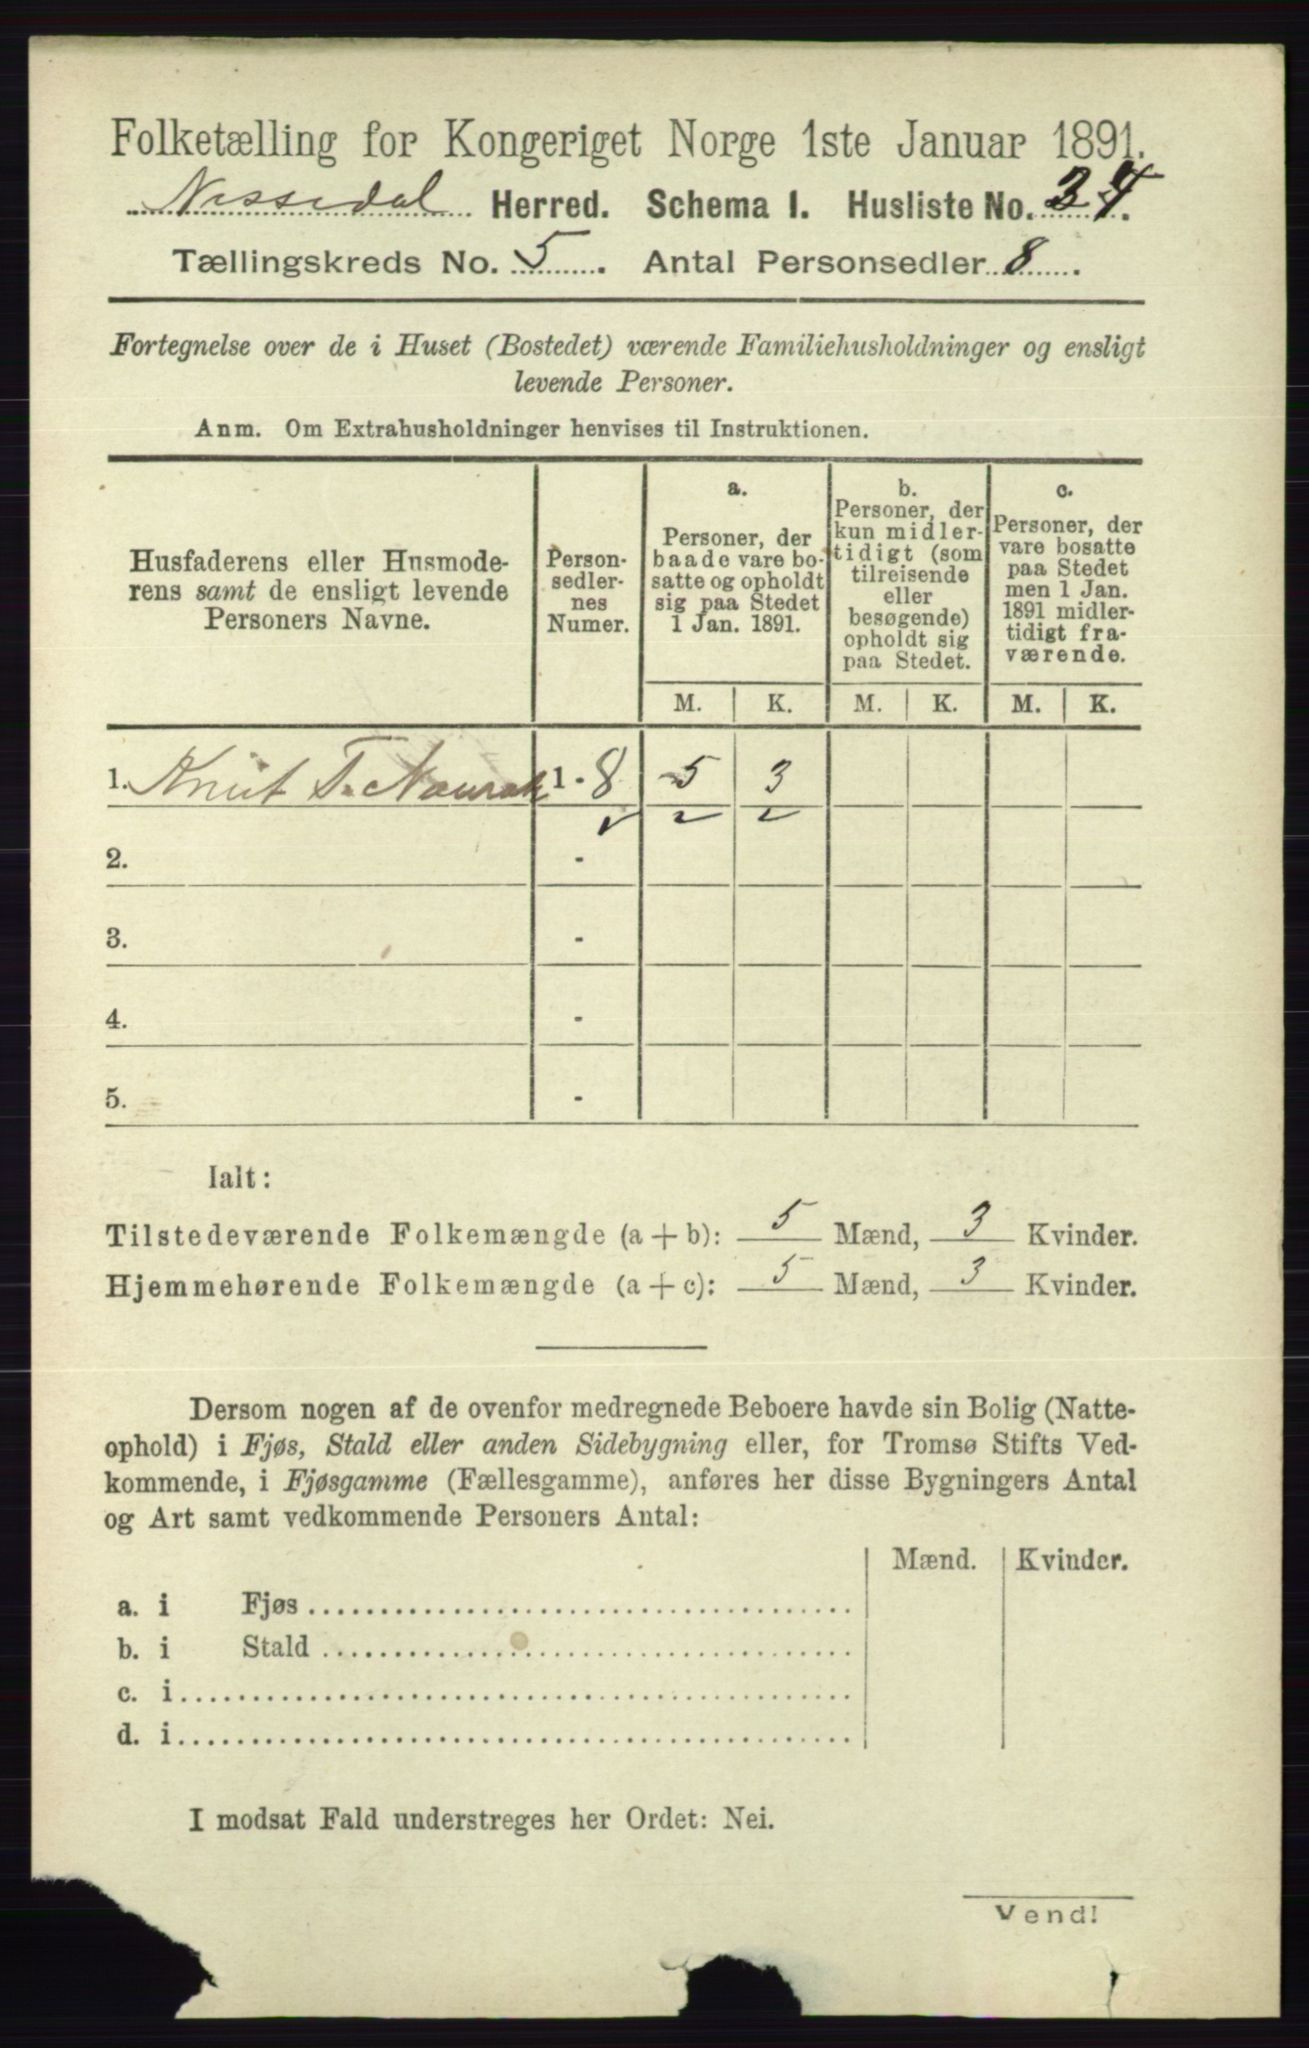 Folketælling for Kongeriget Norge 1ste Januar 1891.
Nissedal Herred. Schema I. Husliste No. 34.
Tællingskreds No. 5. Antal Personsedler 8.
Fortegnelse over de i Huset (Bostedet) værende Familiehusholdninger og ensligt
levende Personer.
Anm. Om Extrahusholdninger henvises til Instruktionen.
Husfaderens eller Husmode-
rens samt de ensligt levende
Personers Navne.
Person-
sedler-
nes
Numer.
a.
Personer, der
baade vare bo-
satte og opholdt
sig paa Stedet
1 Jan. 1891.
b.
Personer, der
kun midler-
tidigt (som
tilreisende
eller
besøgende)
opholdt sig
paa Stedet.
c.
Personer, der
vare bosatte
paa Stedet
men 1 Jan.
1891 midler-
tidigt fra-
værende.
M. K. M. K. M. K.
1. Knut T. 1 - 8 5 3
2. -
3. -
4. -
5. -
Ialt:
Tilstedeværende Folkemængde (a + b): 5 Mænd, 3 Kvinder.
Hjemmehørende Folkemængde (a + c): 5 Mænd, 3 Kvinder.
Dersom nogen af de ovenfor medregnede Beboere havde sin Bolig (Natte-
ophold) i Fjøs, Stald eller anden Sidebygning eller, for Tromsø Stifts Ved-
kommende, i Fjøsgamme (Fællesgamme), anføres her disse Bygningers Antal
og Art samt vedkommende Personers Antal:
Mænd. Kvinder.
a. i Fjøs
b. i Stald
c. i
d. i
I modsat Fald understreges her Ordet: Nei.
Vend!